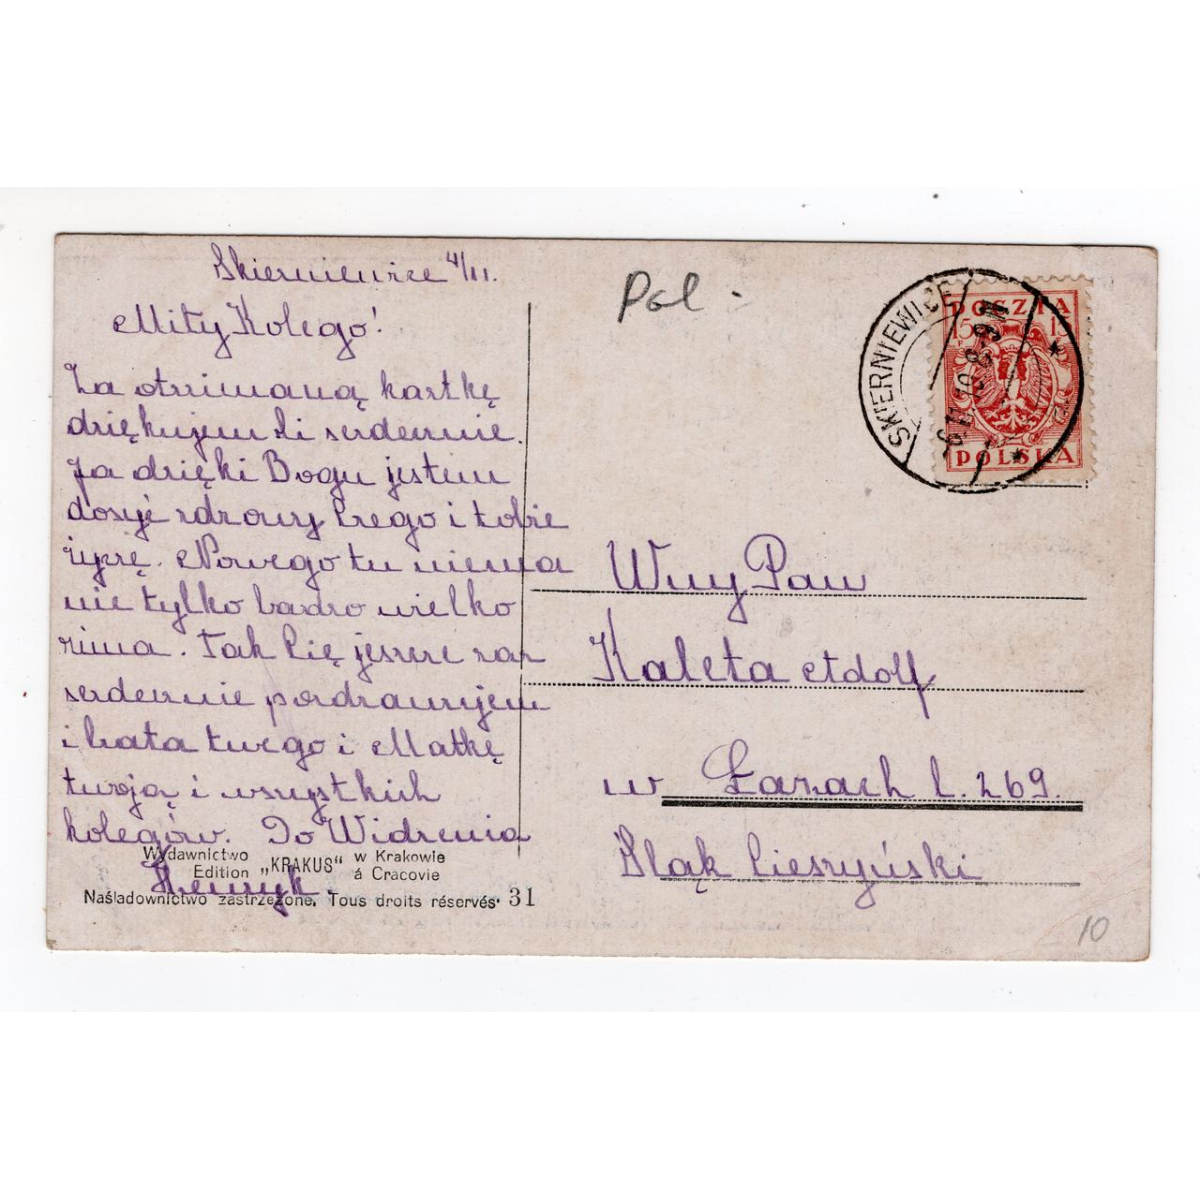 Skierniewice 4/II.
Miły Kolego!
Za otrzimaną kartkę
dziękujem Ci serdecznie.
Ja dzięki Bogu jestem
dosyć zdrowy czego i tobie
życzę. Nowego tu niema
nie tylko bardzo wielko
zima. Tak Cię jeszcze raz
serdecznie pozdrawiijem
i brata twego i Matkę
twoją i wszystkich
kolegów. Do Widzenia
Henryk.
Wydawnictwo „KRAKUS“ w Krakowie
Edition á Cracovie
Naśladownictwo zastrzeżone. Tous droits réservés. 31
Pol
SKIERNIEWICE
POCZTA
15 15
POLSKA
Wny Pan
Kaleta Adolf
w Łazach l. 269.
Śląk Cieszyński
10